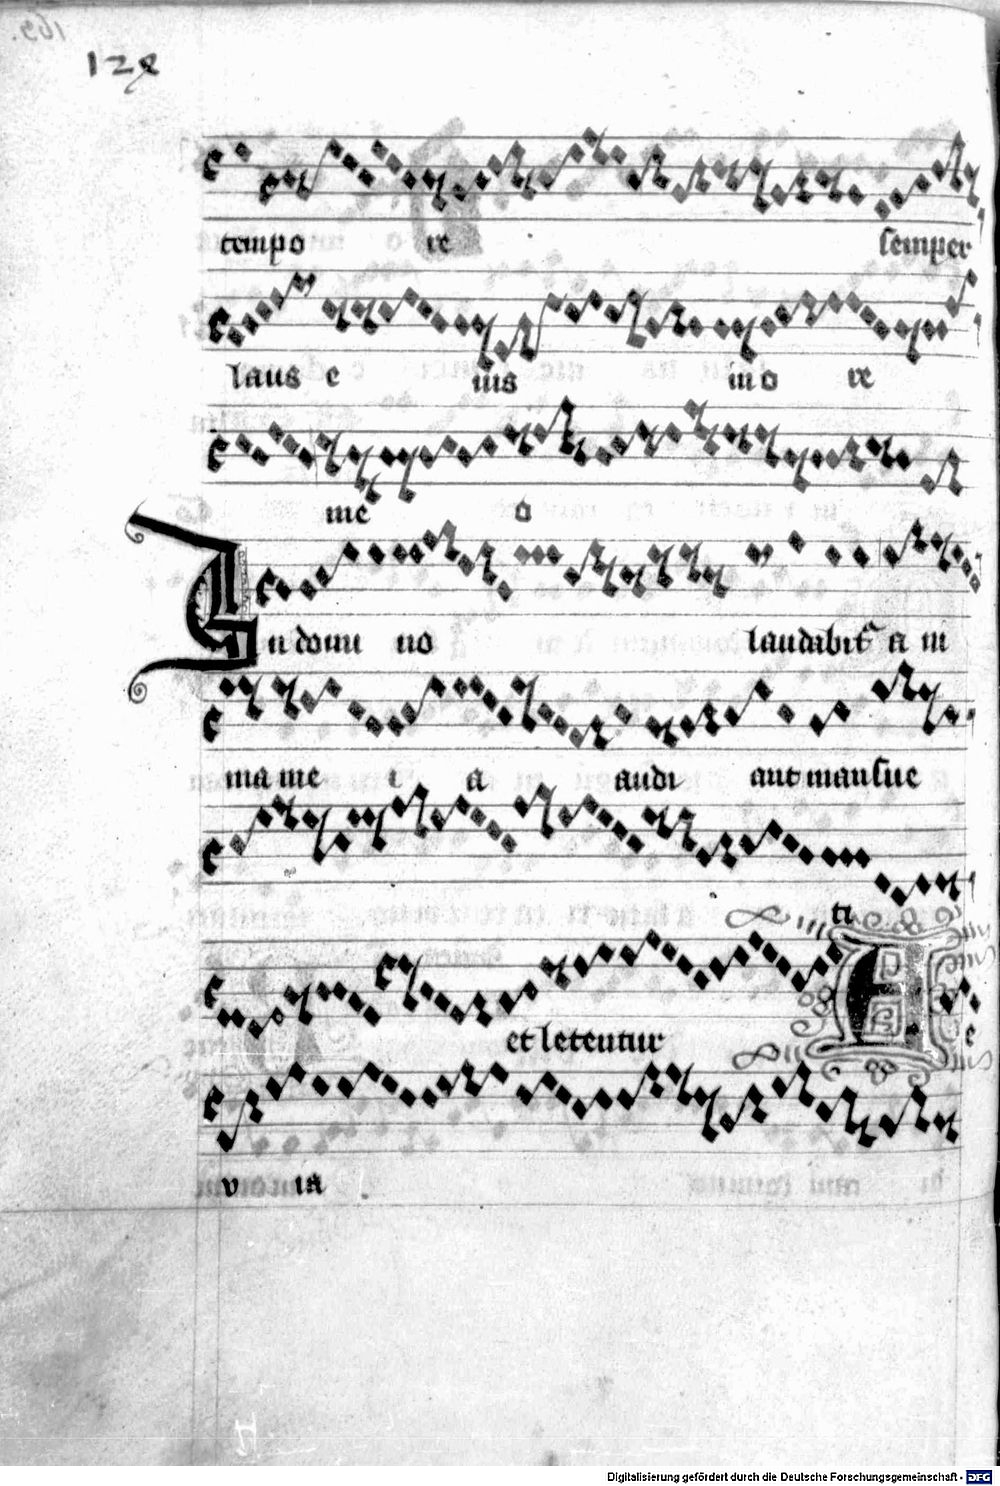 128
tempo re semper
laus e ius in o re
me o
In domi no laudabit᷑ a ni
ma me i a audi ant mansue
ti
et letentur E e
v ia
Digitalisierung gefördert durch die Deutsche Forschungsgemeinschaft - DFG